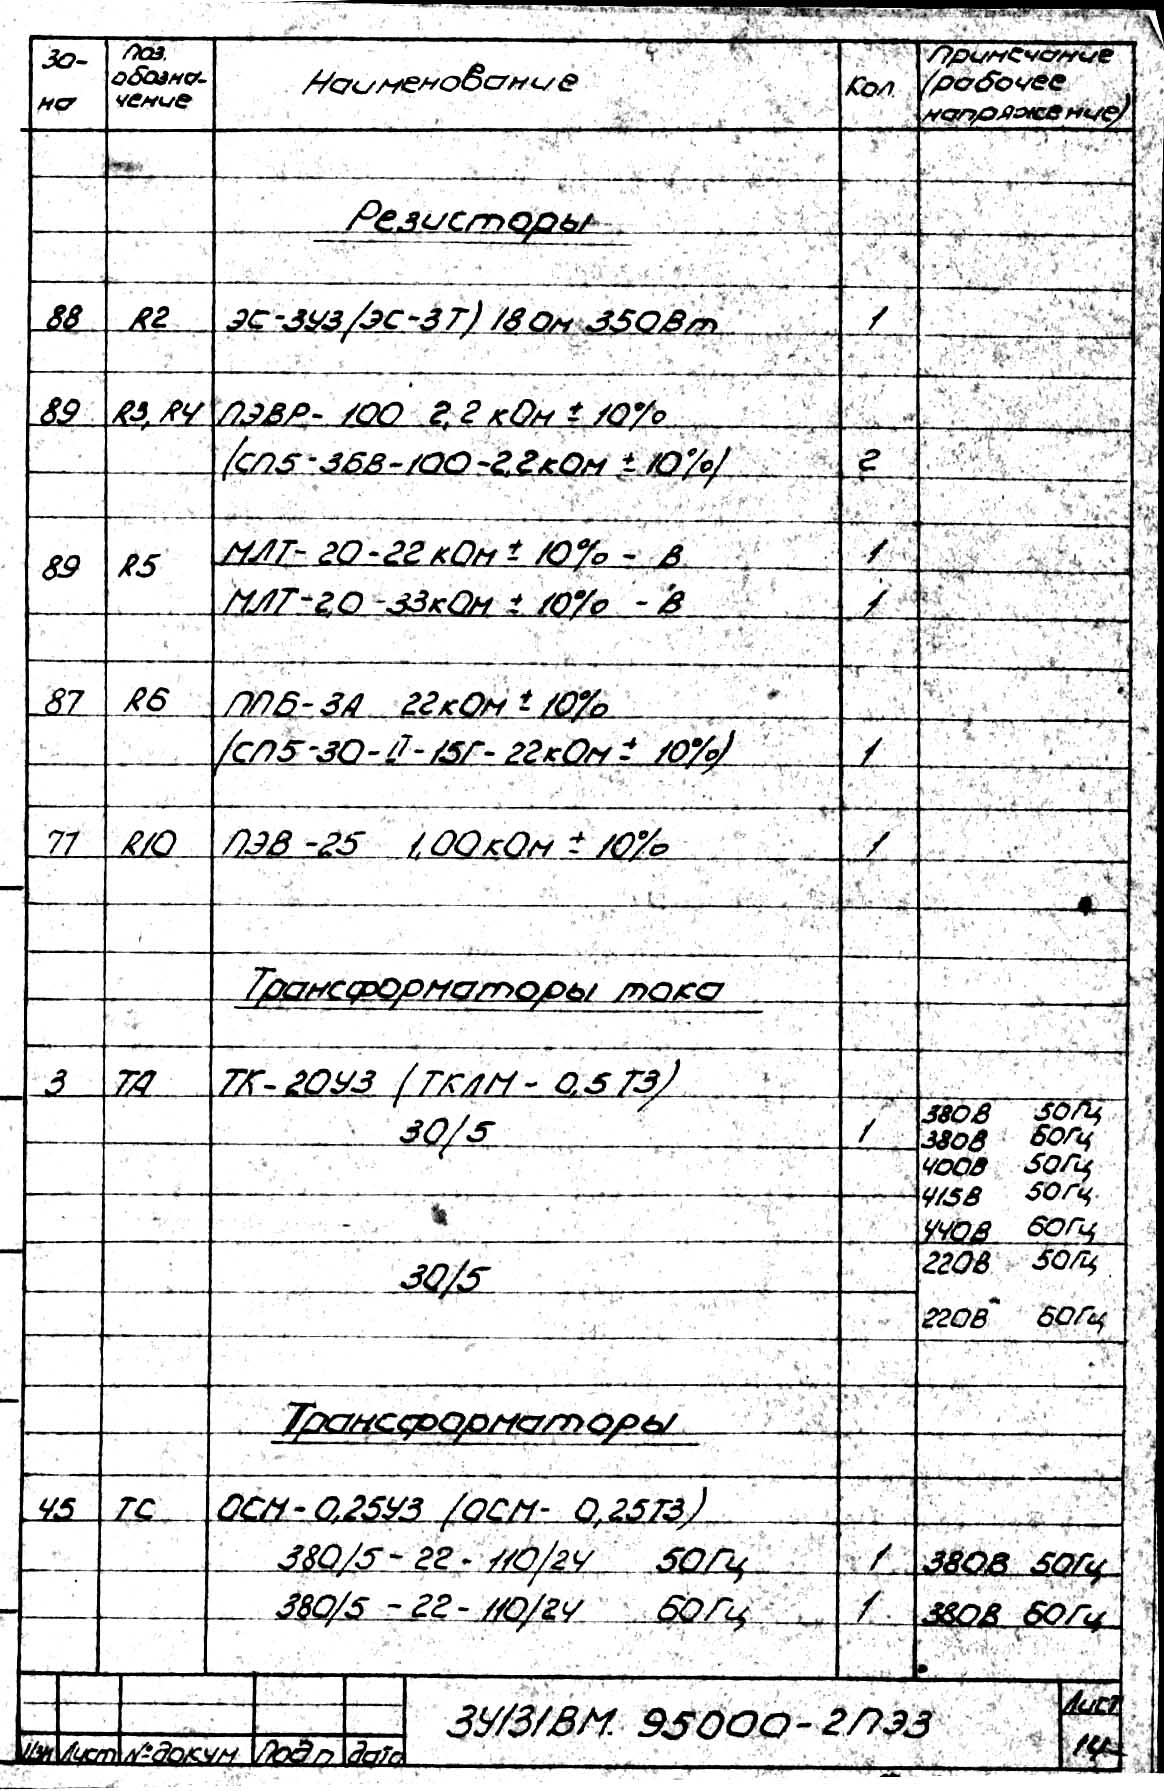 Зо-
на
Поз.
обозна-
чение
Наименование
Кол.
Примечание
(рабочее
напряжение)
Резисторы
88 R2 ЭС-3У3/ЭС-3Т) 18 Ом 350Вт 1
89 R3, R4 ПЭВР- 100 2,2 кОм ± 10%
/СП5-36В-100-2,2кОм ± 10%/ 2
89 R5 МЛТ- 20-22 кОм ± 10% - В 1
МЛТ-2,0 -33кОм ± 10% - В 1
87 R6 ППБ-3А 22кОм ± 10%
/СП5-30-II-15Г- 22кОм ± 10%) 1
77 R10 ПЭВ -25 1,00кОм ± 10% 1
Трансформаторы тока
3 ТА ТК-20У3 (ТКЛМ - 0,5 Т3)
30/5 1
380В 50Гц
380В 60Гц
400В 50Гц
415В 50Гц
440В 60Гц
30/5
220В 50Гц
220В 60Гц
Трансформаторы
45 ТС ОСМ-0,25У3 (ОСМ- 0,25Т3)
380/5-22-110/24 50Гц 1 380В 50Гц
380/5 -22-110/24 60Гц 1 380В 60Гц
Изм Лист № докум Подп дата
ЗУ131ВМ. 95000-2ПЭ3
Лист
14